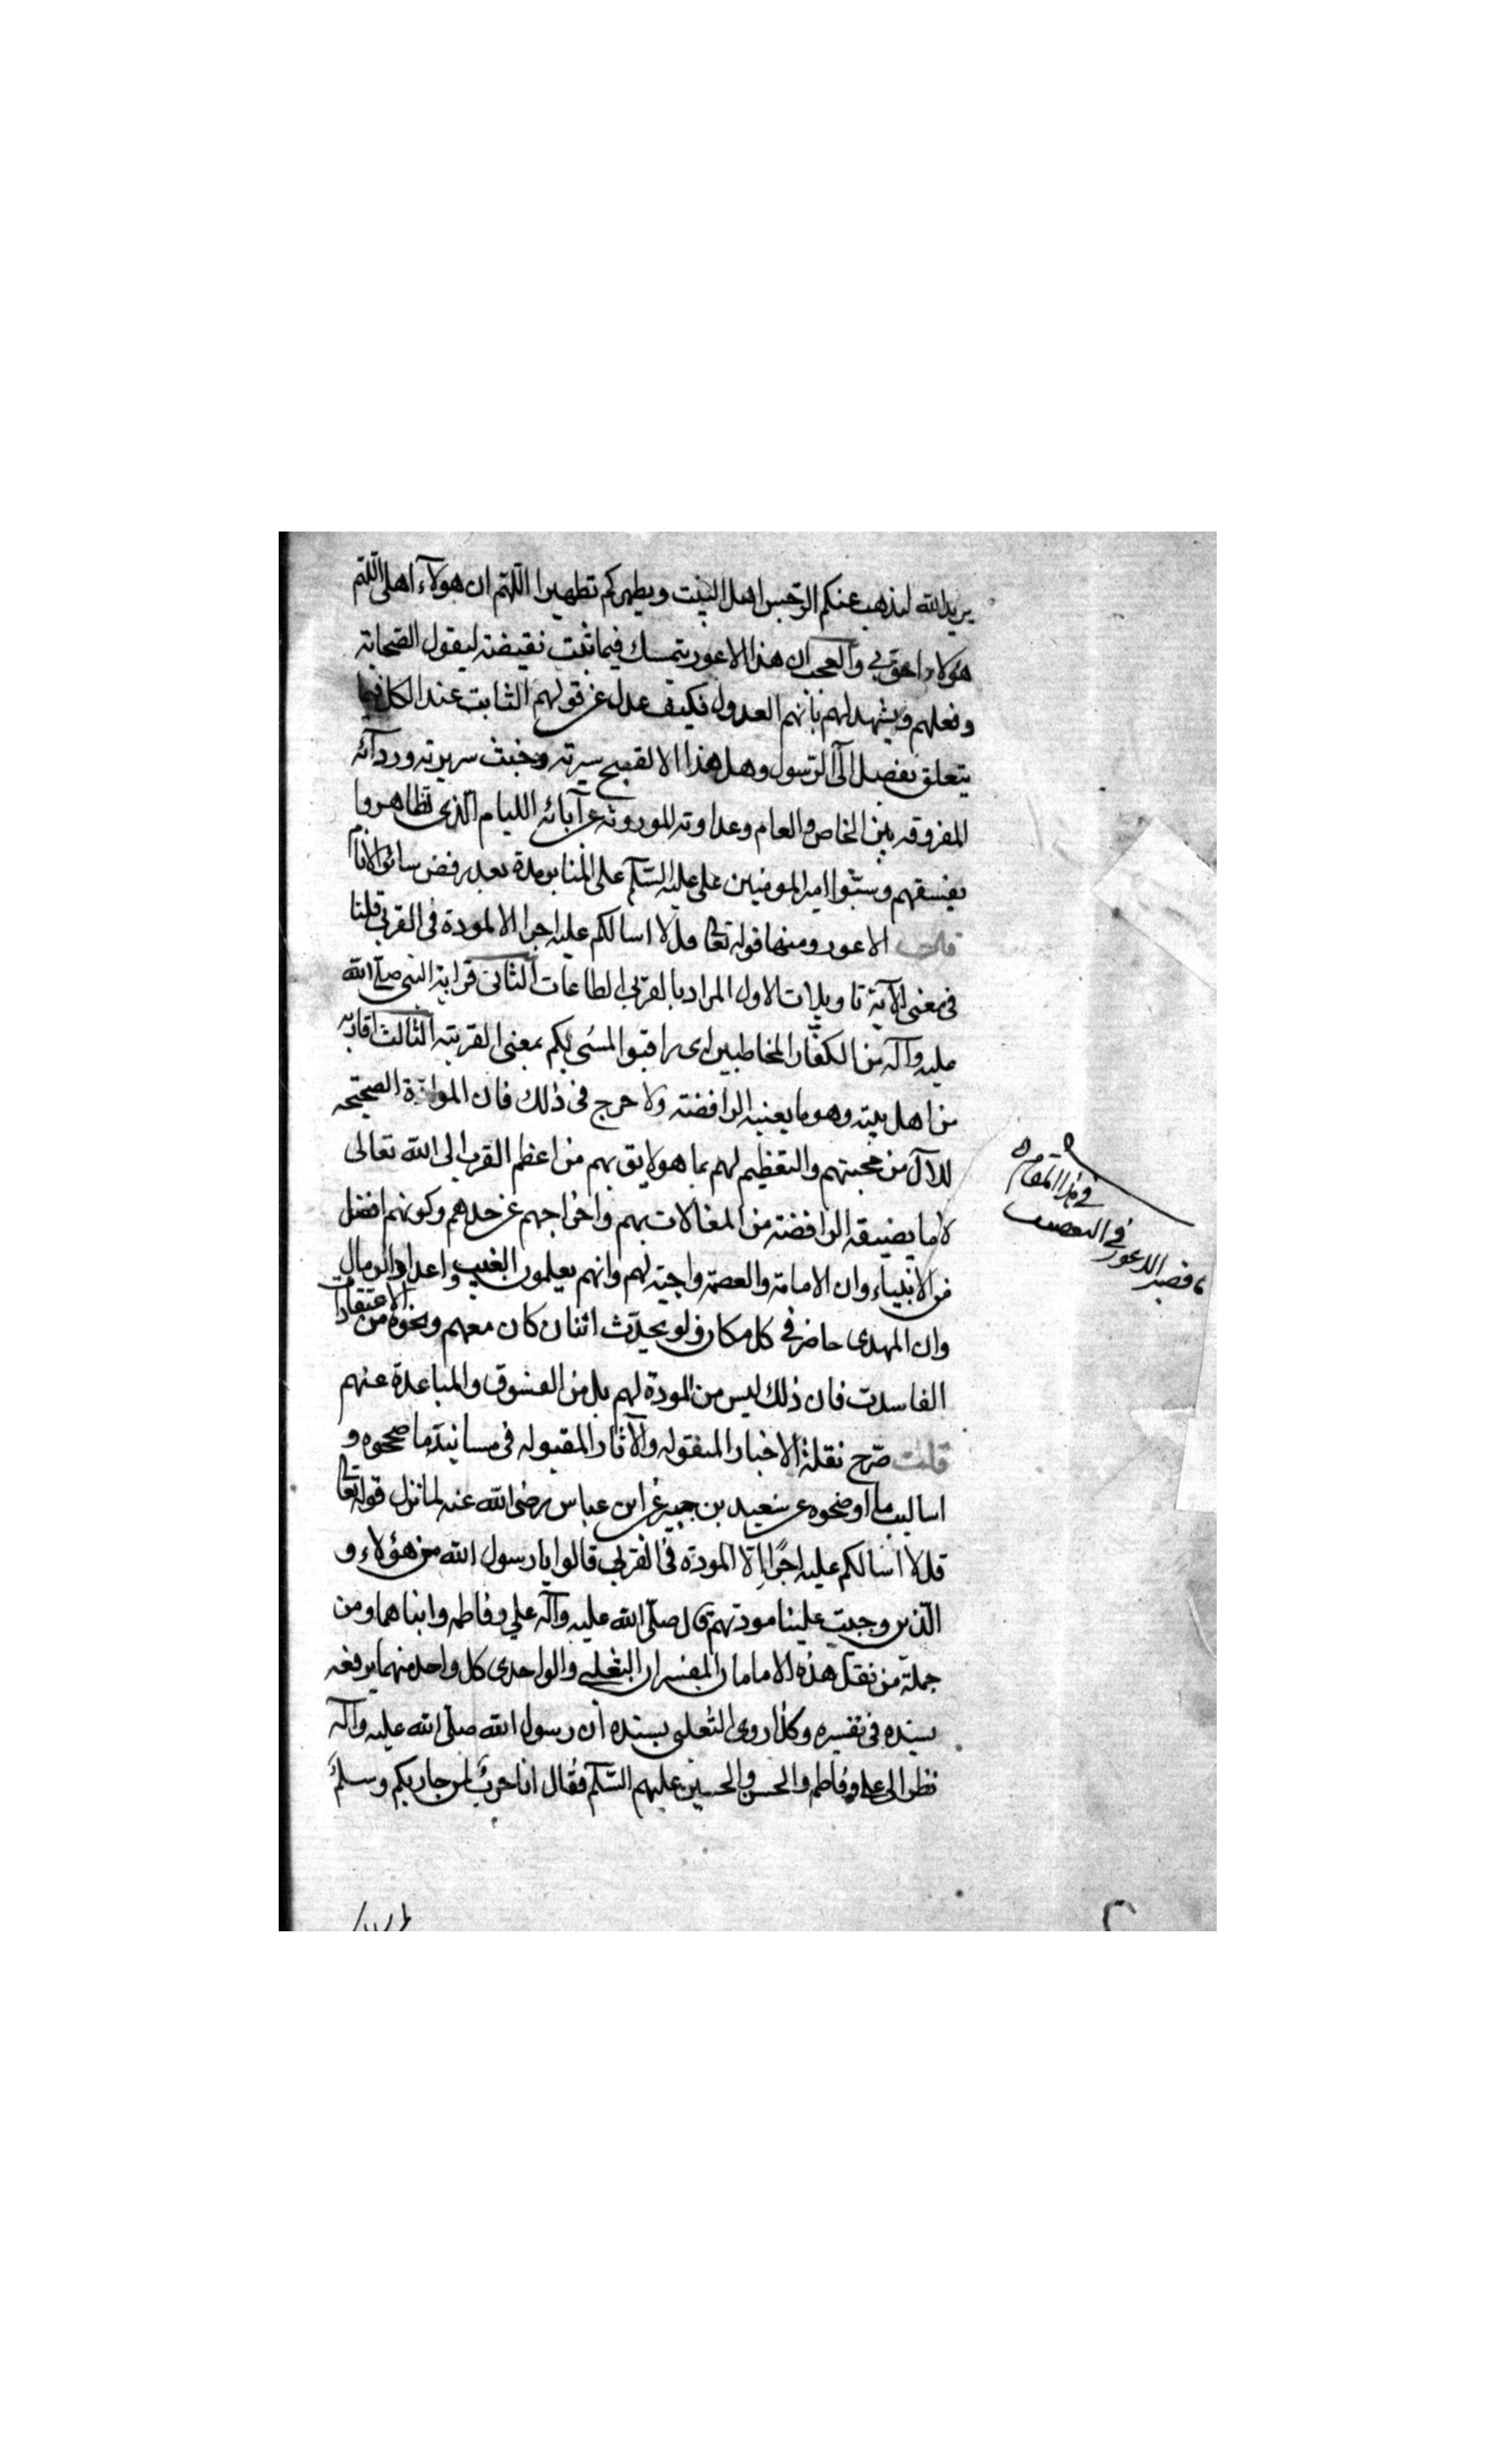 يريد الله ليذهب عنكم الرجس اهل البيت ويطهركم تطهيرا اللهم ان هولآء اهلى اللهم
هؤلاء احق بي والعجب ان هذا الاعور يتمسك فيما ثبت نقيضه ليقول الصحابة
وفعلهم ويشهد لهم بانهم العدول فكيف عدل عن قولهم الثابت عند الكل فيما
يتعلق بفضل آل الرسول وهل هذا الا لقبح سيرته وخبث سريرته وردآئه
المفروقه بين الخاص والعام وعداوته الموروثه عن آبائه الليام الذى تظاهروا
بفسقهم وسبوا امير المومنين على عليه السلم على المنابر مدة بعد رفض سائر الانام
قال الاعور ومنها قوله تعالى قل لا اسالكم عليه اجرا الا المودة فى القربى قلنا
فى معنى الآية تاويلات الاول المراد بالقربى الطاعات الثانى قرابة النبى صلى الله
عليه وآله من الكفار المخاطبين اى راقبوا لمسى بكم بمعنى القريته الثالث اقاربه
من اهل بيته وهو ما يعنيه الرافضته ولا حرج فى ذلك فان الموادة الصحيحه
للآل من محبتهم والتعظيم لهم بما هو لايق بهم من اعظم القرب الى الله تعالى
لا ما يضيفه الرافضته من المغالات بهم واخراجهم عن حدهم وكونهم افضل
من الانبياء وان الامامة والعصمة واجبة لهم وانهم يعلمون الغيب واعداد الرمال
وان المهدى حاضر فى كل مكان ولو يحدث اثنان كان معهم ونحوه من الاعتقادات
الفاسدت فان ذلك ليس من المودة لهم بل من الفسوق والمباعدة عنهم
قلت صرح نقلة الاخبار المنقوله والآثار المقبوله فى مسانيد ما صححوه و
اساليب ما اوضحوه عن سعيد بن جبير عن ابن عباس رضى الله عنه لما نزل قوله تعالى
قل لا اسالكم عليه اجرًا الا المودة فى القربى قالوا يا رسول الله من هؤلاء و
الذين وجبت علينا مودتهم قال صلى الله عليه وآله على وفاطمه وابناهما ومن
جملة من نقل هذه الامامان المفسران الثعلبى والواحدى كل واحد منهما يرفعه
بسنده فى تفسيره وكذا روى الثعلبى بسنده ان رسول الله صلى الله عليه وآله
نظر الى على وفاطمه والحسن والحسين عليهم السلم فقال انا حرب لمن حاربكم وسلم
فى هذا المقام
فى التعصب
الاعور